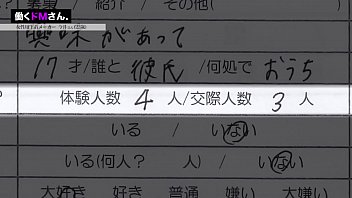 働くドMさん。
女性用下着メーカー
/ 紹介 / その他(
興味があって
17才/誰と 彼氏/何処で おうち
体験人数 4 人/交際人数 3 人
いる / いない
いる(何人? 人) / いない
大好き 好き 普通 嫌い 大嫌